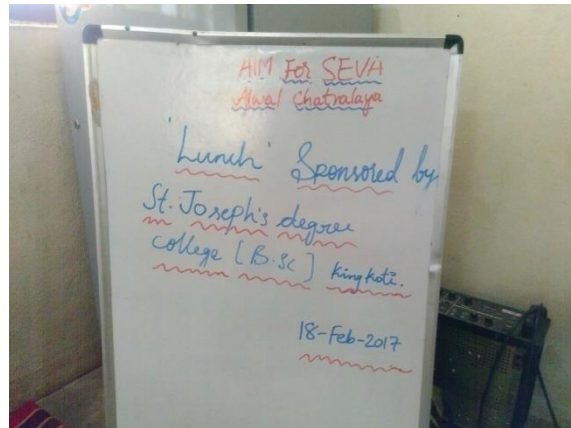 AIM For SEVA
Alwal Chatralaya
Lunch Sponsored by
St. Joseph's degree
college [B.Sc] King koti.
18-Feb-2017